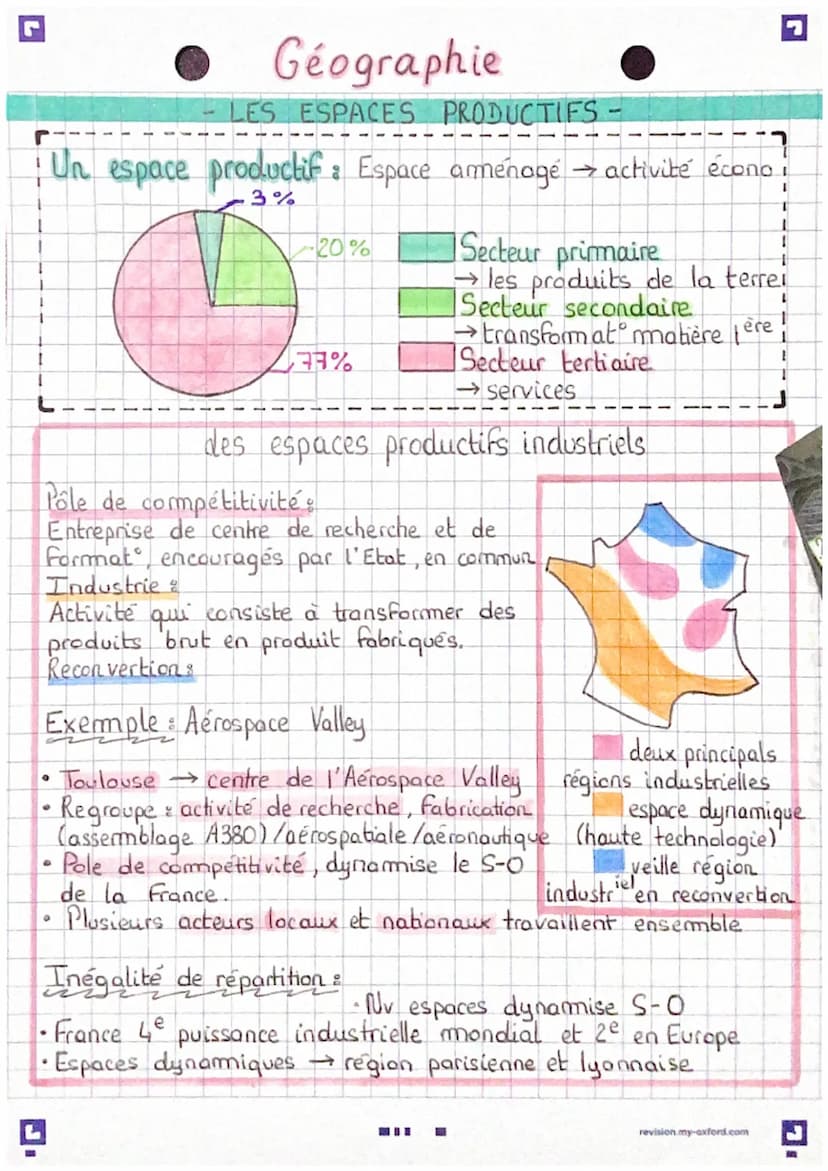 Géographie
- LES ESPACES PRODUCTIFS -
Un espace productif : Espace aménagé → activité écono
3%
20%
77%
Secteur primaire
→ les produits de la terre
Secteur secondaire
→ transformat° matière 1ère
Secteur tertiaire
→ services
des espaces productifs industriels
Pôle de compétitivité :
Entreprise de centre de recherche et de
format°, encouragés par l'Etat, en commun
Industrie :
Activité qui consiste à transformer des
produits brut en produit fabriqués.
Reconvertion :
Exemple : Aérospace Valley
• Toulouse → centre de l'Aérospace Valley
• Regroupe : activité de recherche, fabrication
(assemblage A380)/aérospatiale/aéronautique
• Pole de compétitivité, dynamise le S-O
de la France.
• Plusieurs acteurs locaux et nationaux travaillent ensemble
deux principals
régions industrielles
espace dynamique
(haute technologie)
veille région
industriel en reconvertion
Inégalité de répartition :
• Nv espaces dynamise S-O
• France 4e puissance industrielle mondial et 2e en Europe
• Espaces dynamiques → région parisienne et lyonnaise
revision.my-oxford.com